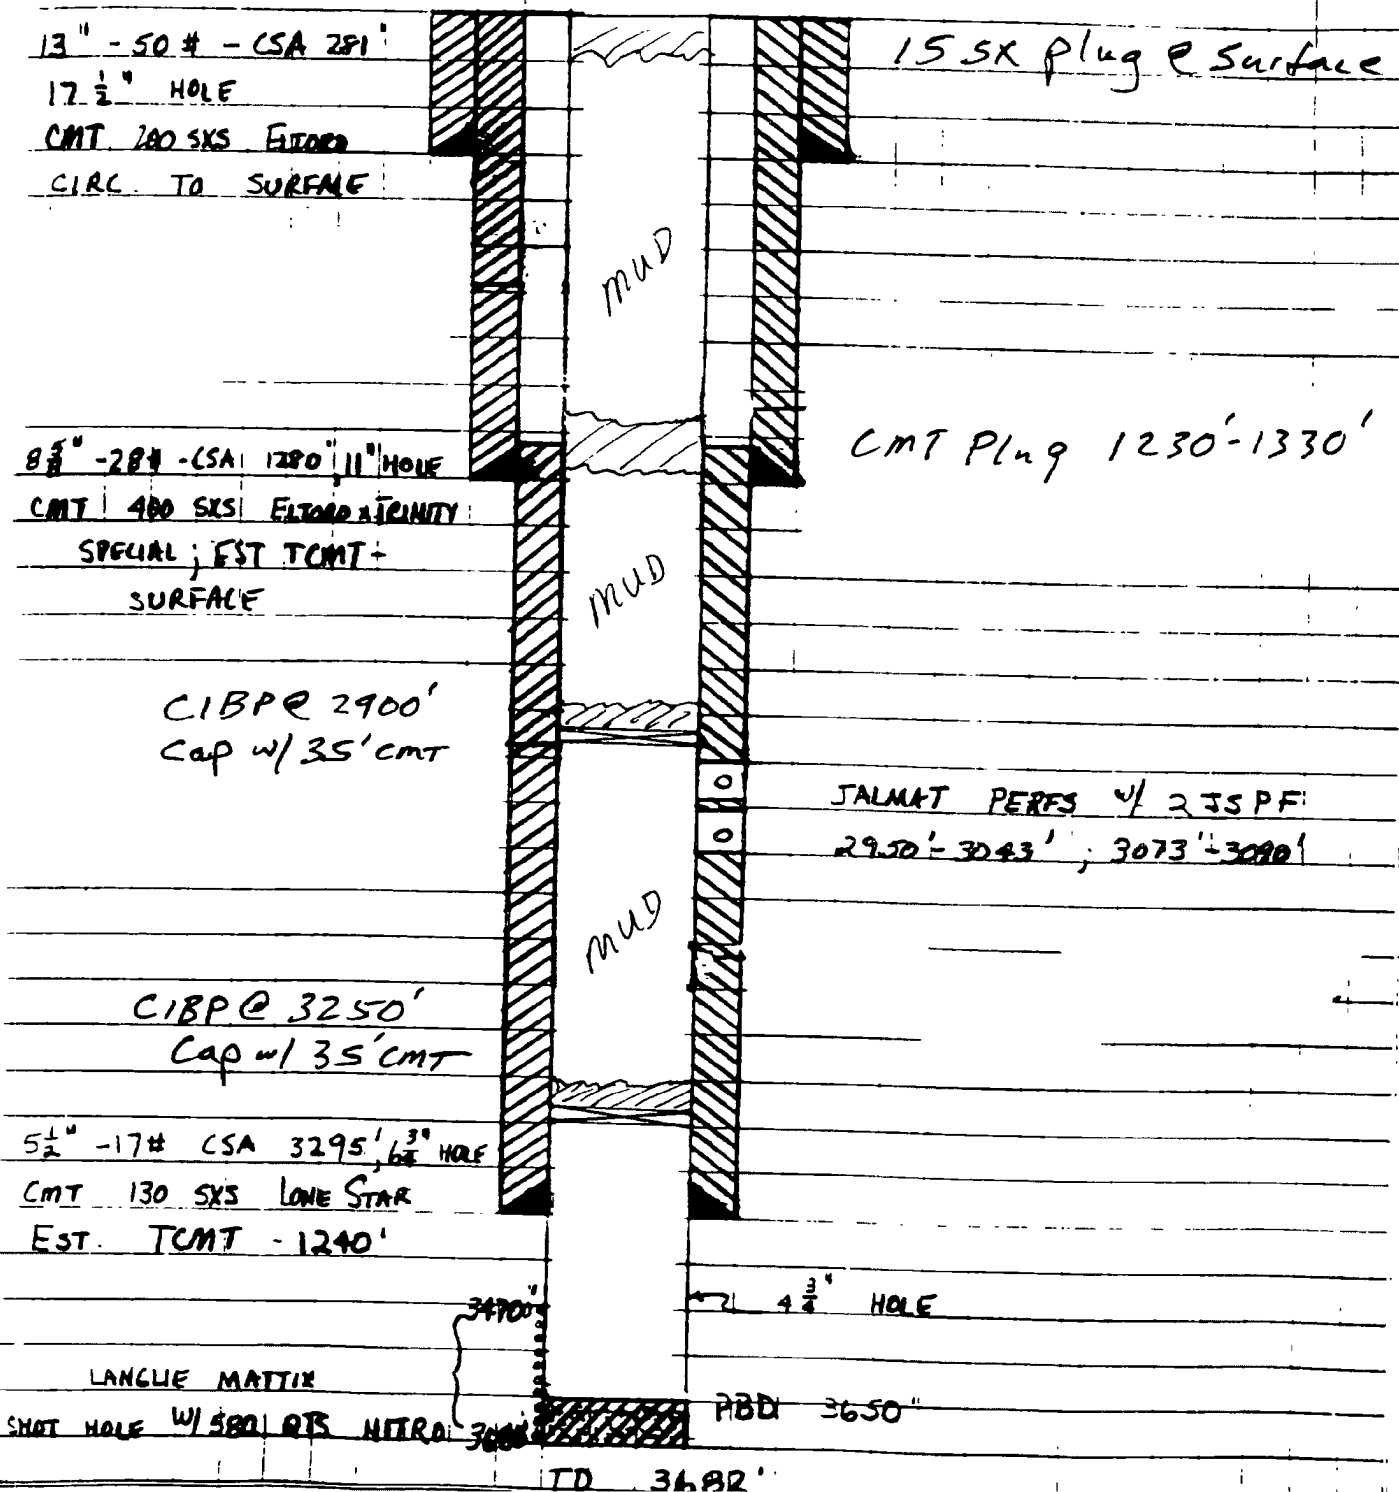 13" - 50 # - CSA 281'
15 SX plug @ Surface
17 1/2" HOLE
CMT 200 SXS ELTORO
CIRC. TO SURFACE
MUD
CMT Plug 1230'-1330'
8 5/8" - 28# - CSA 1280' 11" HOLE
CMT 400 SXS ELTORO & TRINITY
SPECIAL ; EST TCMT -
SURFACE
MUD
CIBP @ 2900'
Cap w/ 35' CMT
JALMAT PERFS W/ 2 JSPF
2950'- 3043' ; 3073'-3090'
MUD
CIBP @ 3250'
Cap w/ 35' CMT
5 1/2" - 17# CSA 3295', 6 3/4" HOLE
CMT 130 SXS LONE STAR
EST. TCMT - 1240'
4 3/4" HOLE
LANGLIE MATTIX
SHOT HOLE W/ 580 QTS NITRO
PBD 3650'
TD 3682'